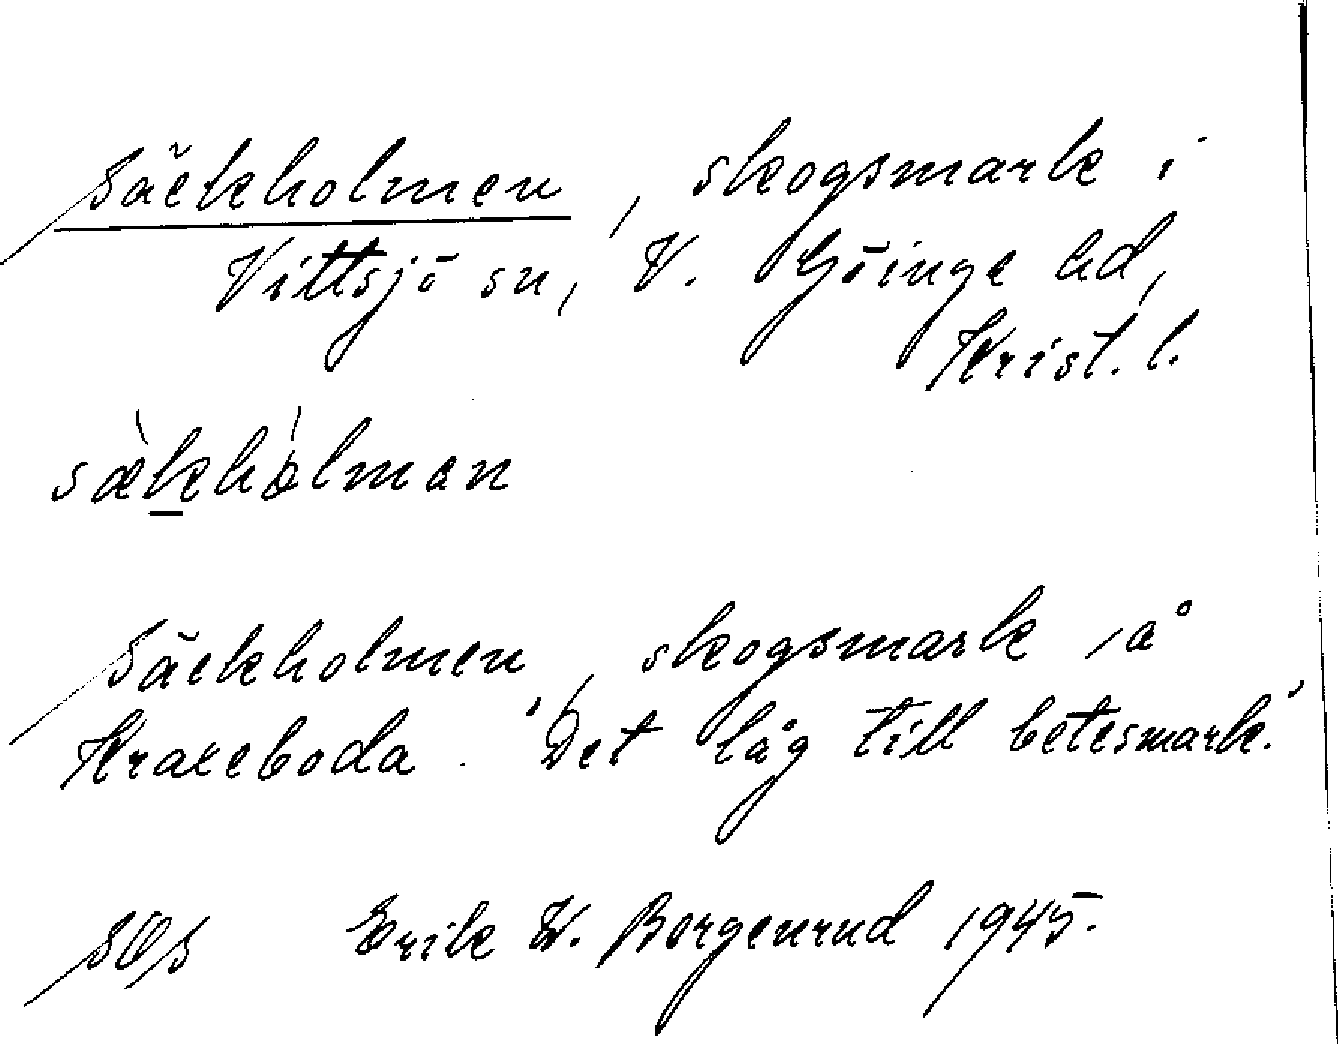 Säckholmen, skogsmark i
Vittsjö sn, V. Göinge hd,
Krist. l.
sæ̀khólman
Säckholmen, skogsmark å
Kraxeboda. "Det låg till betesmark."
SOS Erik W. Borgenrud 1945.